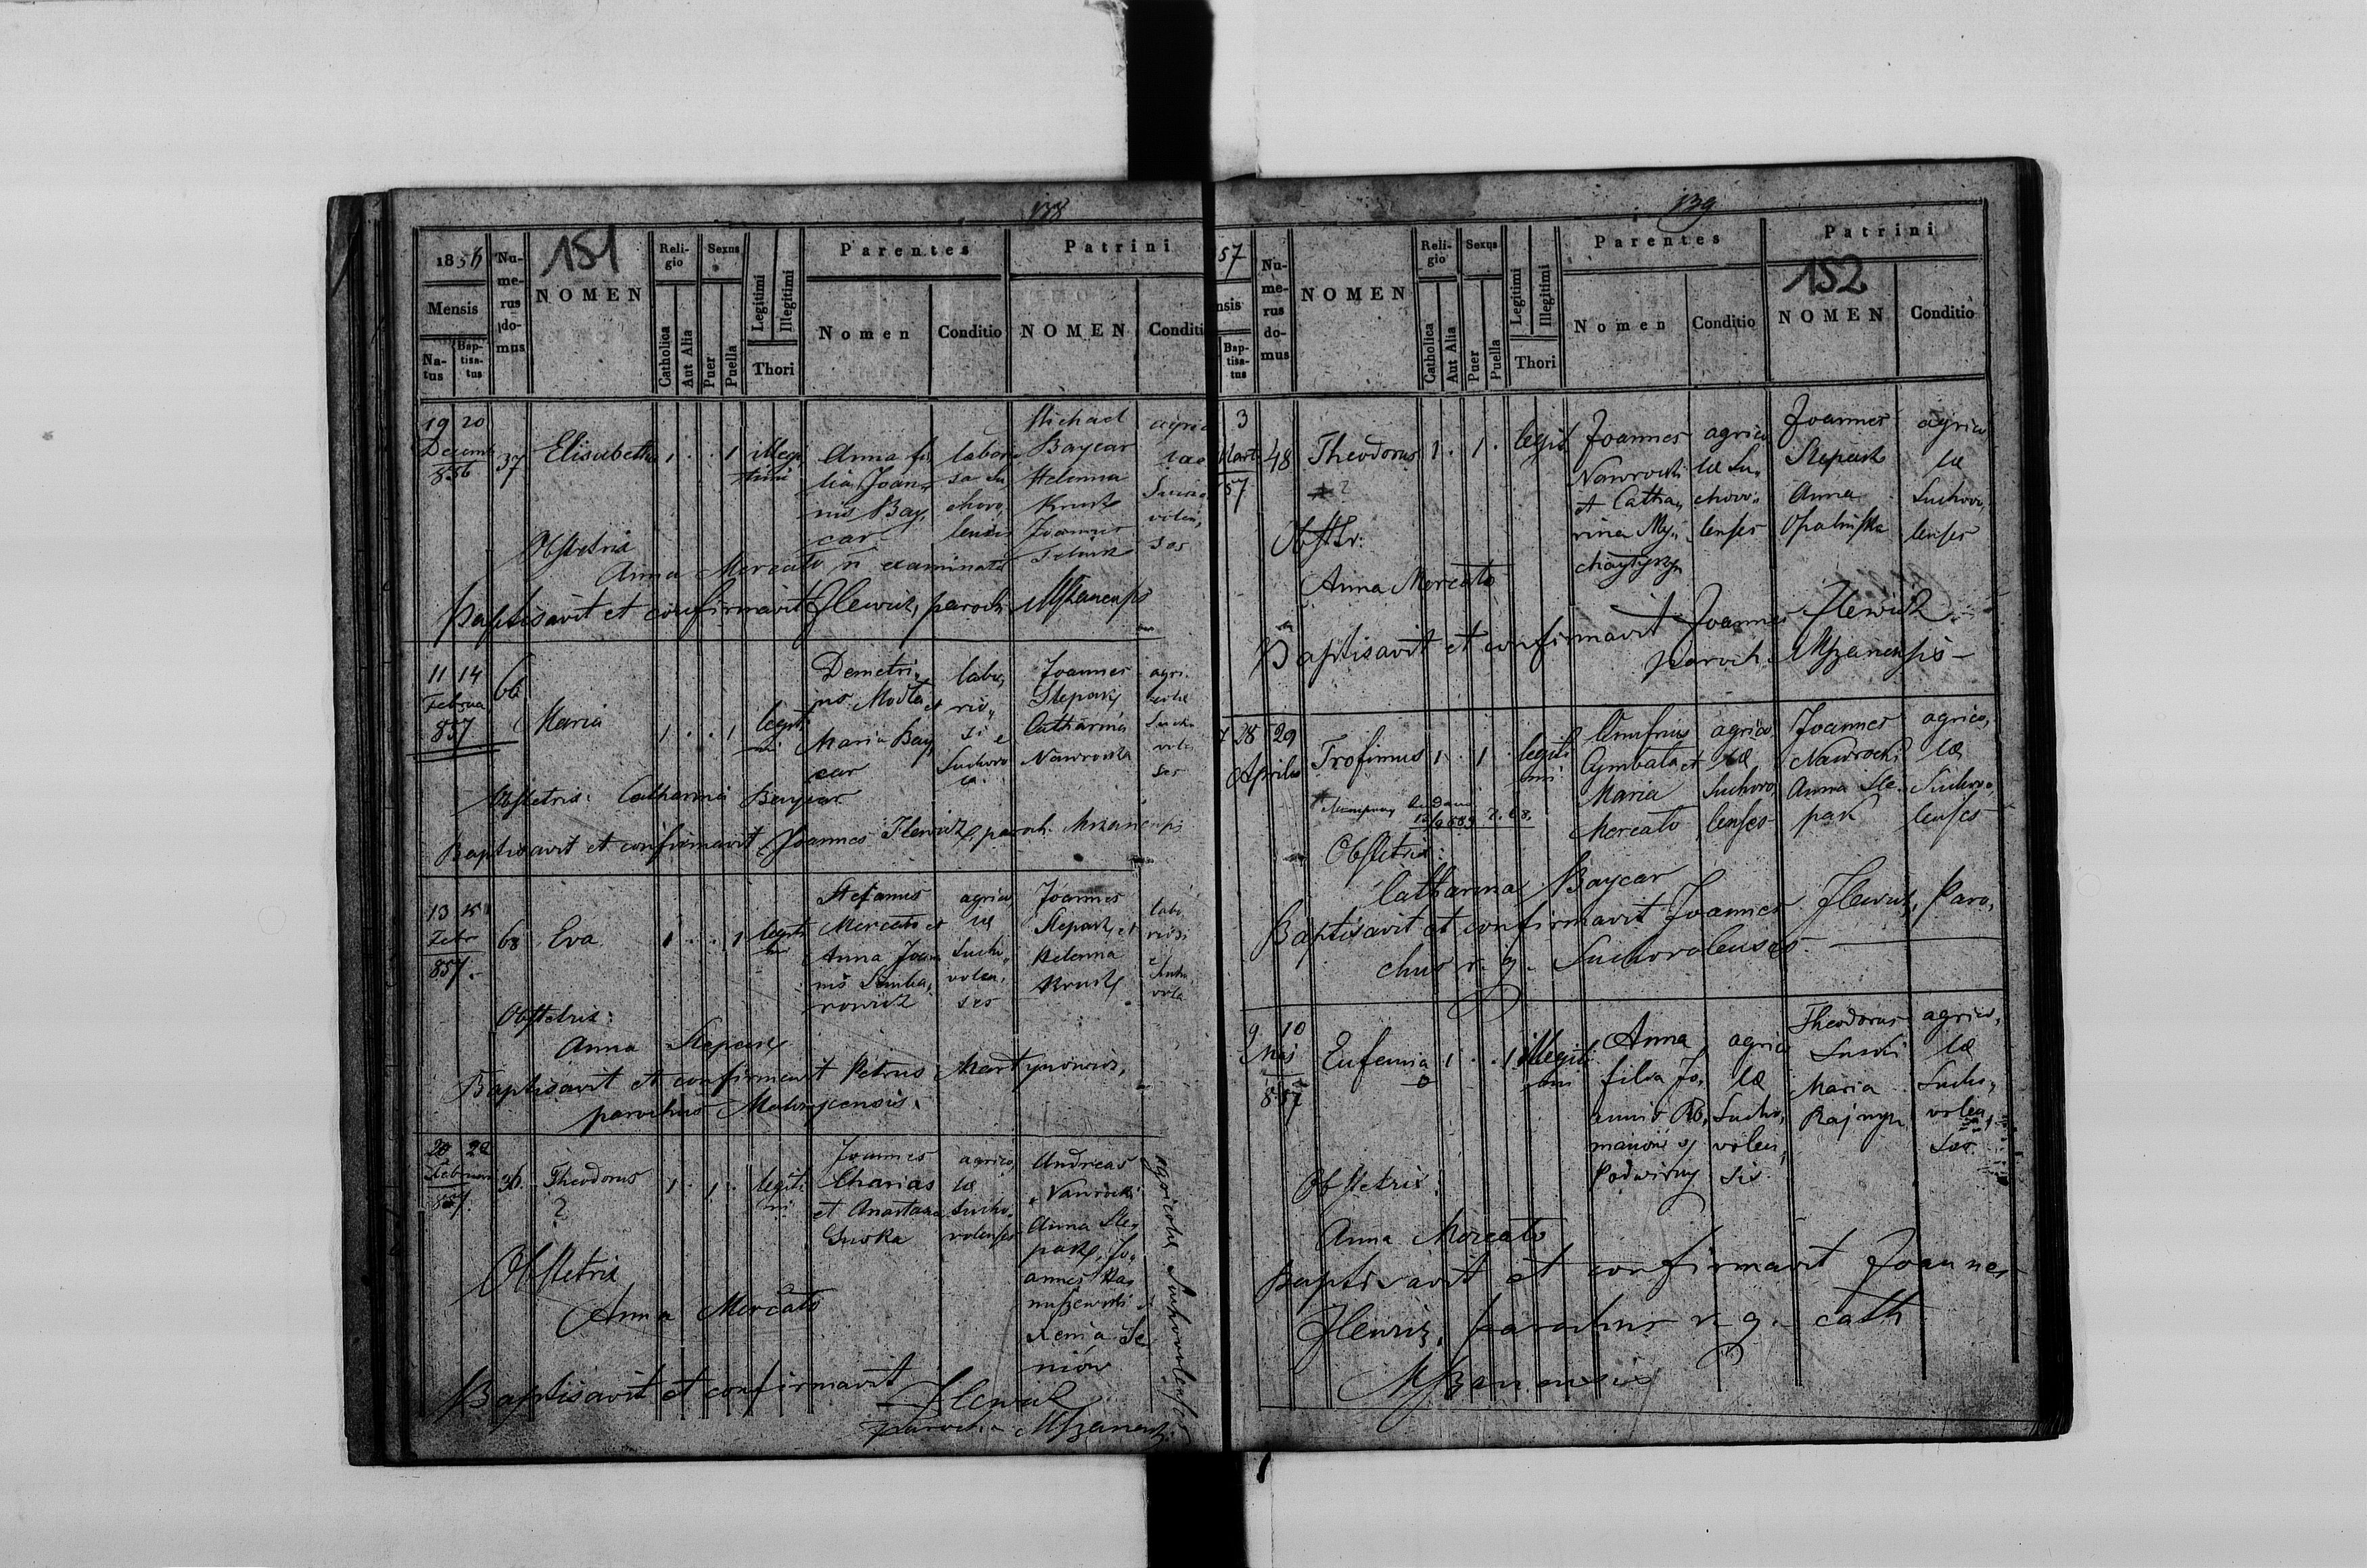 138
151
1856
Mensis
Na-
tus
Bap-
tisa-
tus
Nu-
me-
rus
do-
mus
NOMEN
Reli-
gio
Catholica
Aut Alia
Sexus
Puer
Puella
Legitimi
Illegitimi
Thori
Parentes
Nomen
Conditio
Patrini
NOMEN
Conditi
19 20
Decemb
856
37
Elisabetha
1 . . 1
illegi
timi
Anna fi
lia Joan
nis Bay
car
labori
sa Su
choro
lensis
Michael
Baycar
Helenna
Kruck
Joannes
agric
Obstetrix
Anna Mercato n examinata
Baptisavit et confirmavit Ilewicz, paroch. Mszanensis
11 14
Februa
857
66
Maria
1 . . 1
legiti
mi
Demetri
us Modla et
Maria Bay
car
labo
rio
si e
Suchoro
la
Joannes
Stepak
Catharina
Nawrocka
agri
colae
Sucho
volen
ses
Obstetrix: Catharina Baycar
Baptisavit et confirmavit Joannes Ilewicz, paroch. Mszanensis
13 15
Febr
857.
68
Eva
1 . . 1
legiti
mi
Stefanus
Mercato et
Anna Joan
nis
agrico
lae
Sucho
volen
ses
Joannes
Stepak et
Helenna
Kruck
labo
riosi
Sucho
vola
Obstetrix:
Anna Stepak
Baptisavit et confirmavit Petrus Martynowicz,
parochus
20 22
Februari
857.
36.
Theodorus
?
1 . 1 .
legiti
mi
Joannes
Charias
et Anastasia
Guska
agrico
lae
Sucho
volenses
Andreas
Nawrocki
Anna Ste
pak, Jo
annes Ka
nuszewski
Xenia Se
niów
agricolae Suchovolenses
Obstetrix
Anna Mercato
Baptisavit et confirmavit
Ilewicz
Paroch. Mszanensis
139
152
57
nsis
Bap-
tisa-
tus
Nu-
me-
rus
do-
mus
NOMEN
Reli-
gio
Catholica
Aut Alia
Sexus
Puer
Puella
Legitimi
Illegitimi
Thori
Parentes
Nomen
Conditio
Patrini
NOMEN
Conditio
3
Mart
57
48
Theodorus
?
1 . 1 .
legit
Joannes
Nawrocki
et Catha
rina My
agrico
lae Su
choro
lenses
Joannes
Stepak
Anna
Opalinska
agrico
lae
Suchovo
lenses
Obstetr:
Anna Mercato
Baptisavit et confirmavit Joannes Ilewicz
paroch. Mszanensis
28 29
Aprilis
Trofimus
1 . 1 .
legiti
mi
Onufrius
Cymbala et
Maria
Mercato
agrico
lae
Suchovo
lenses
Joannes
Nawrocki
Anna Ste
pak
agrico,
lae
Suchovo,
lenses
Obstetrix:
Catharina Baycar
Baptisavit et confirmavit Joannes Ilewicz, Paro,
chus r. g. Suchovolenses.
9 10
Maj
857
Eufemia
1 . . 1
illegiti
mi
Anna
filia Jo,
annis Ro,
manów
Podwirny
agrico
lae
Sucho,
volen,
sis
Theodorus
Suski
Maria
agrico,
lae
Sucho,
volen,
ses
Obstetrix:
Anna Mercato
Baptisavit et confirmavit Joannes
Ilewicz, parochus r. g. cath
Mszanensis